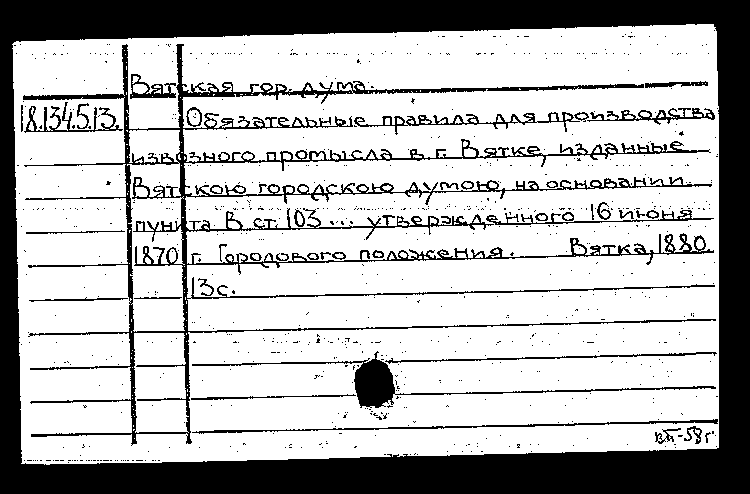 Вятская гор. дума.
18.134.5.13. Обязательные правила для производства
извозного промысла в г. Вятке, изданные
Вятскою городскою думою, на основании
пункта В ст. 103 ... утвержденного 16 июня
1870 г. Городового положения. Вятка, 1880
13с.